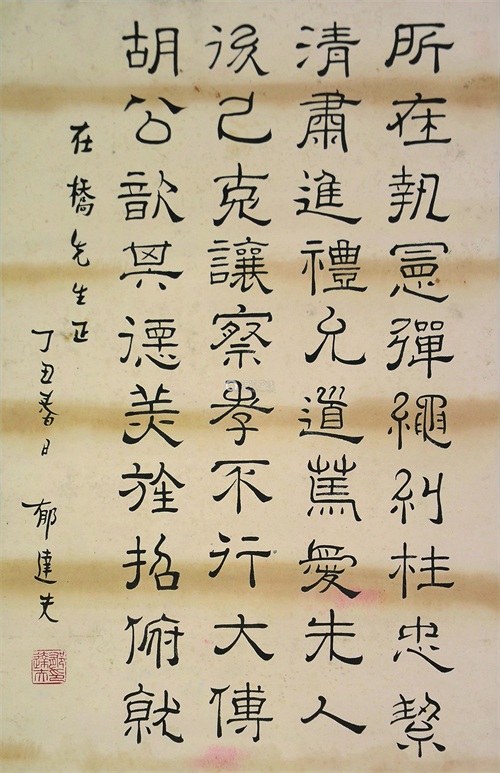 所在執憲彈繩糾枉忠絜
清肅進禮允道篤愛先人
後己克讓察孝不行大傅
胡公歆其德美旌招俯就
在橋先生正
丁丑春日 郁達夫